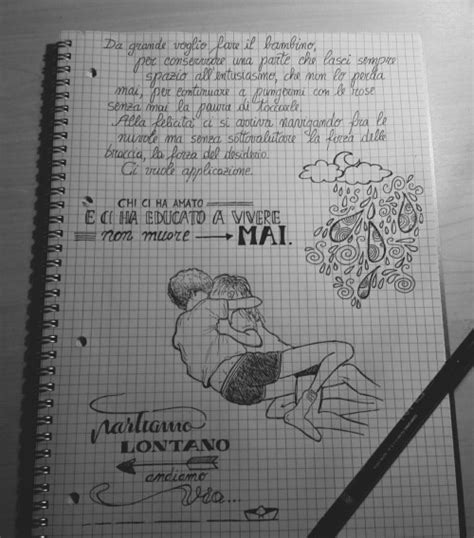 Da grande voglio fare il bambino,
per conservare una parte che lasci sempre
spazio all'entusiasmo, che non lo perda
mai, per continuare a pungermi con le rose
senza mai la paura di toccarle.
Alla felicità ci si arriva navigando fra le
nuvole ma senza sottovalutare la forza delle
braccia, la forza del desiderio.
Ci vuole applicazione.
CHI CI HA AMATO
E CI HA EDUCATO A VIVERE
non muore MAI.
Partiamo
LONTANO
andiamo
via...